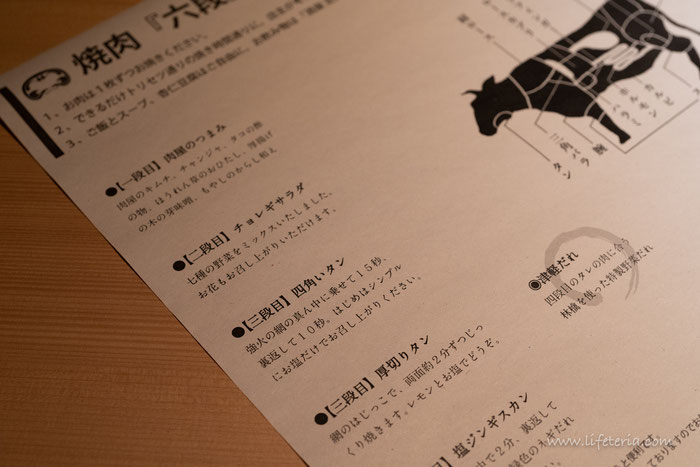 焼肉『六段
1、お肉は1枚ずつお焼きください。
2、できるだけトリセツ通りの焼き時間通りに、
3、ご飯とスープ、杏仁豆腐はご自由に、お飲み物は
●【一段目】肉屋のつまみ
肉屋のキムチ、チャンジャ、タコの酢
の物、ほうれん草のおひたし、厚揚げ
の木の芽味噌、もやしのからし和え
●【二段目】チョレギサラダ
七種の野菜をミックスいたしました。
お花もお召し上がりいただけます。
●【三段目】四角いタン
強火の網の真ん中に乗せて15秒、
裏返して10秒、はじめはシンプル
にお塩だけでお召し上がりください。
●【三段目】厚切りタン
網のはじっこで、両面約2分ずつじっ
くり焼きます。レモンとお塩でどうぞ。
】塩ジンギスカン
中で2分、裏返して
色のネギだれ
◉津軽だれ
四段目のタレの肉に合う
林檎を使った特製野菜だれ
カルビ
ホルモン
ハラミ
三角バラ
腕
タン
www.lifeteria.com